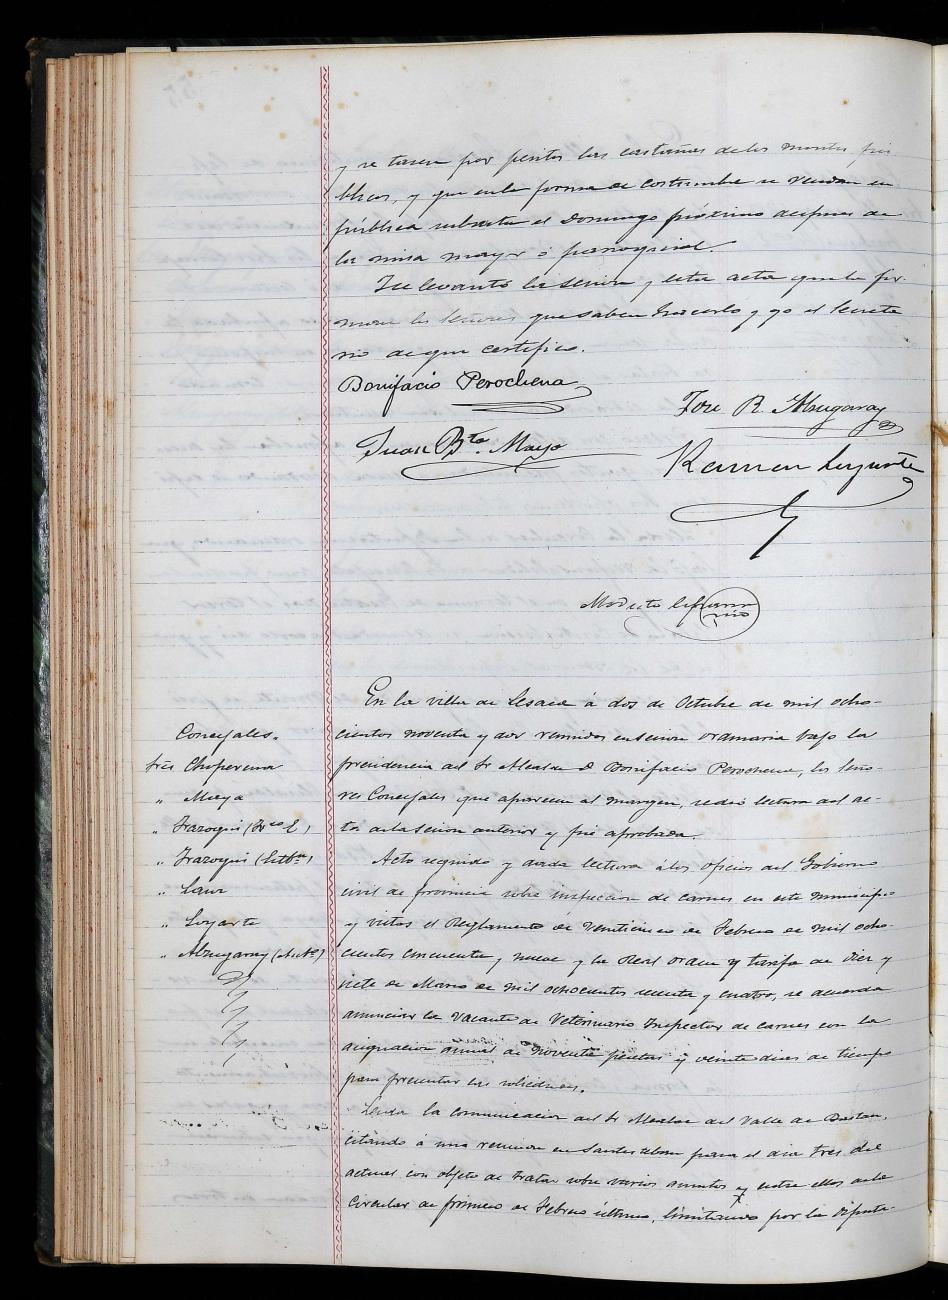 y se tasen por peritos las castañas de los montes pú
blicos, y que en la forma de costumbre se vendan en
pública subasta el Domingo próximo despues de
la misa mayor ó parroquial.
Se levantó la sesion y esta acta que la fir
man los señores que saben hacerlo y yo el Secreta
rio de que certifico.
Bonifacio Perochena
Jose R. Alzugaray
Juan Bta. Maya
Ramon
Modesto
En la villa de Lesaca á dos de Octubre de mil ocho-
cientos noventa y dos reunidos en sesion ordinaria bajo la
presidencia del Sr Alcalde D Bonifacio Perochena, los Seño-
res Concejales que aparecen al margen, se dió lectura del ac-
ta de la sesion anterior y fué aprobada.
Concejales.
Sres Choperena
" Maya
" Irazoqui (Fco E)
" Irazoqui (Estbn)
"
" Loyarte
" Alzugaray (Anto)
Acto seguido y dada lectura á los oficios del Gobierno
civil de provincia sobre inspeccion de carnes en este municipio
y vistos el Reglamento de veinticinco de Febrero de mil ocho-
cientos cincuenta y nueve y la Real orden y tarifa de diez y
siete de Marzo de mil ochocientos sesenta y cuatro, se acuerda
anunciar la vacante de Veterinario Inspector de carnes con la
asignacion anual de noventa pesetas y veinte dias de tiempo
para presentar las solicitudes.
Leida la comunicacion del Sr Alcalde del Valle de Baztan,
citando á una reunion en Santesteban para el dia tres del
actual con objeto de tratar sobre varios asuntos y entre ellos de la
Circular de primero de Febrero último, limitando por la Diputa-